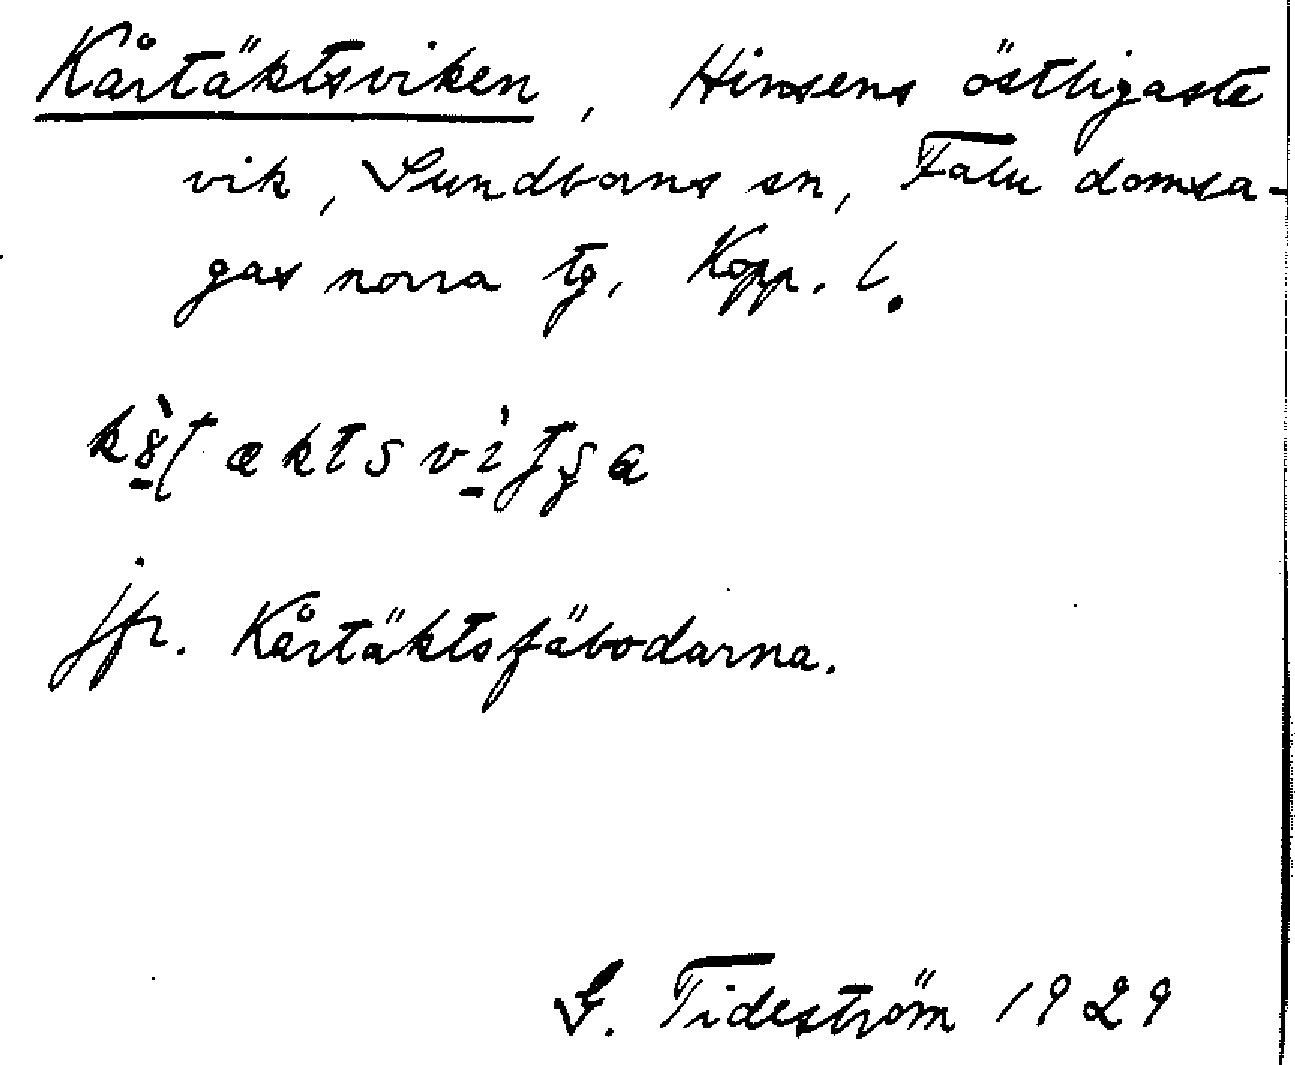 Kårtäktsviken, Hinsens östligaste
vik, Sundborns sn, Falu domsa-
gas norra tg, Kopp. l.
jfr. Kårtäktsfäbodarna.
G. Tideström 1929